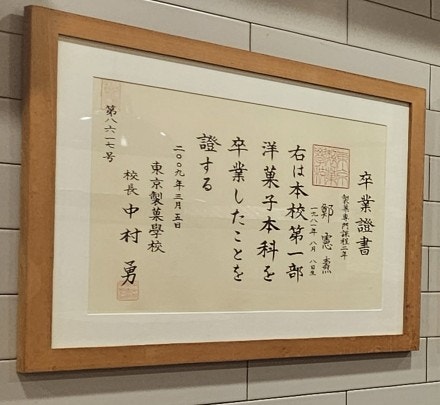 卒業證書
製菓專門課程二年
鄭 憲
八月 八日生
右は本校第一部
洋菓子本科を
卒業したことを
證する
二〇〇九年三月五日
東京製菓學校
校長 中村 勇
第八六一七号